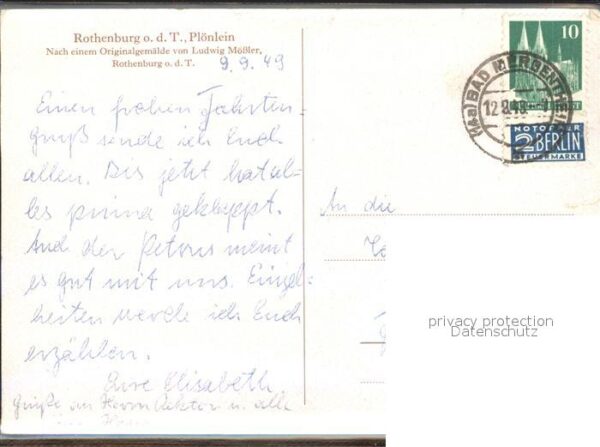 Rothenburg o. d. T., Plönlein
Nach einem Originalgemälde von Ludwig Mößler,
Rothenburg o. d. T.
9. 9. 49
Einen frohen Fahrten-
gruß sende ich Euch
allen. Bis jetzt hat al-
les prima geklappt.
Und der Petrus meint
es gut mit uns. Einzel-
heiten werde ich Euch
erzählen.
Eure Elisabeth
Grüße an Herrn Rektor u. alle
An die
10
BAD MERGENTHEIM
NOTOPFER
2 BERLIN
STEUERMARKE
privacy protection
Datenschutz